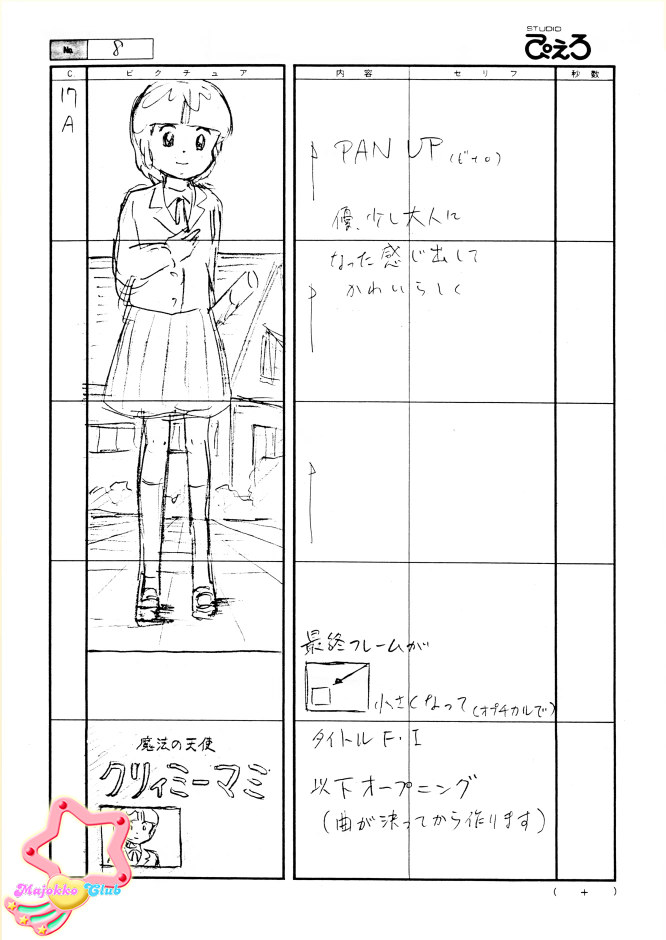 No. 8
STUDIO
ぴえろ
C ピクチュア 内容 セリフ 秒数
17
A
PAN UP
優、少し大人に
なった感じ出して
かわいらしく
最終フレームが
小さくなって(オプチカルで)
タイトル F・I
以下オープニング
(曲が決ってから作ります)
魔法の天使
クリィミーマミ
Majokko Club
( + )